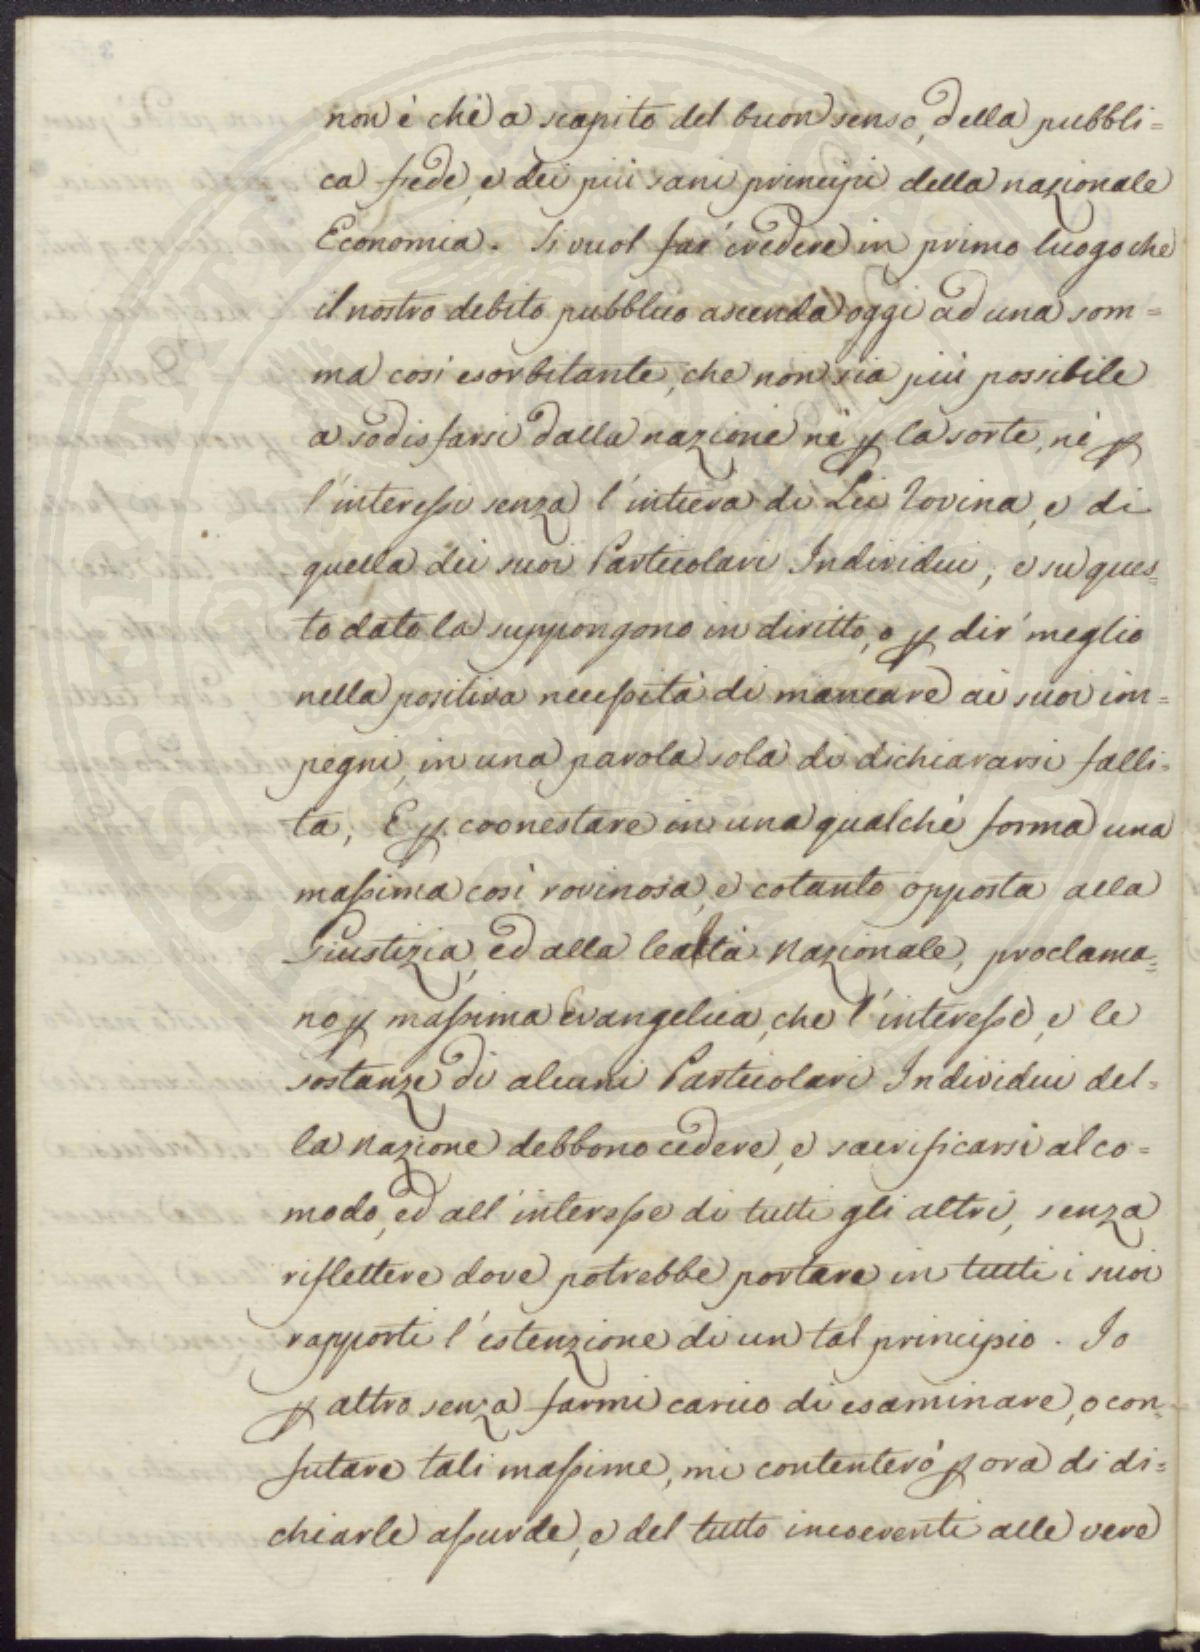 non è chè a scapito del buon senso, della pubbli=
ca fede, e dei più sani principj della nazionale
Economia. Si vuol far' credere in primo luogo che
il nostro debito pubblico ascenda oggi ad una som=
ma così esorbitante, che non sia più possibile
a sodisfarsi dalla nazione nè ꝑ la sorte, nè ꝑ
l'interessi senza l'intiera di Lei rovina, e di
quella dei suoi Particolari Individui; e su ques=
to dato la suppongono in diritto, o ꝑ dir' meglio
nella positiva necessità di mancare ai suoi im=
pegni, in una parola sola di dichiararsi falli=
ta; E ꝑ coonestare in una qualchè forma una
massima così rovinosa, e cotanto opposta alla
Giustizia, ed alla lealtà Nazionale, proclama=
no ꝑ massima Evangelica, che l'interesse, e le
sostanze di alcuni Particolari Individui del=
la Nazione debbono cedere, e sacrificarsi al co=
modo, ed all'interesse di tutti gli altri, senza
riflettere dove potrebbe portare in tutti i suoi
rapporti l'estenzione di un tal principio. Io
ꝑ altro senza farmi carico di esaminare, o con=
futare tali massime, mi contenterò ꝑ ora di di=
chiarle assurde, e del tutto incoerenti alle vere